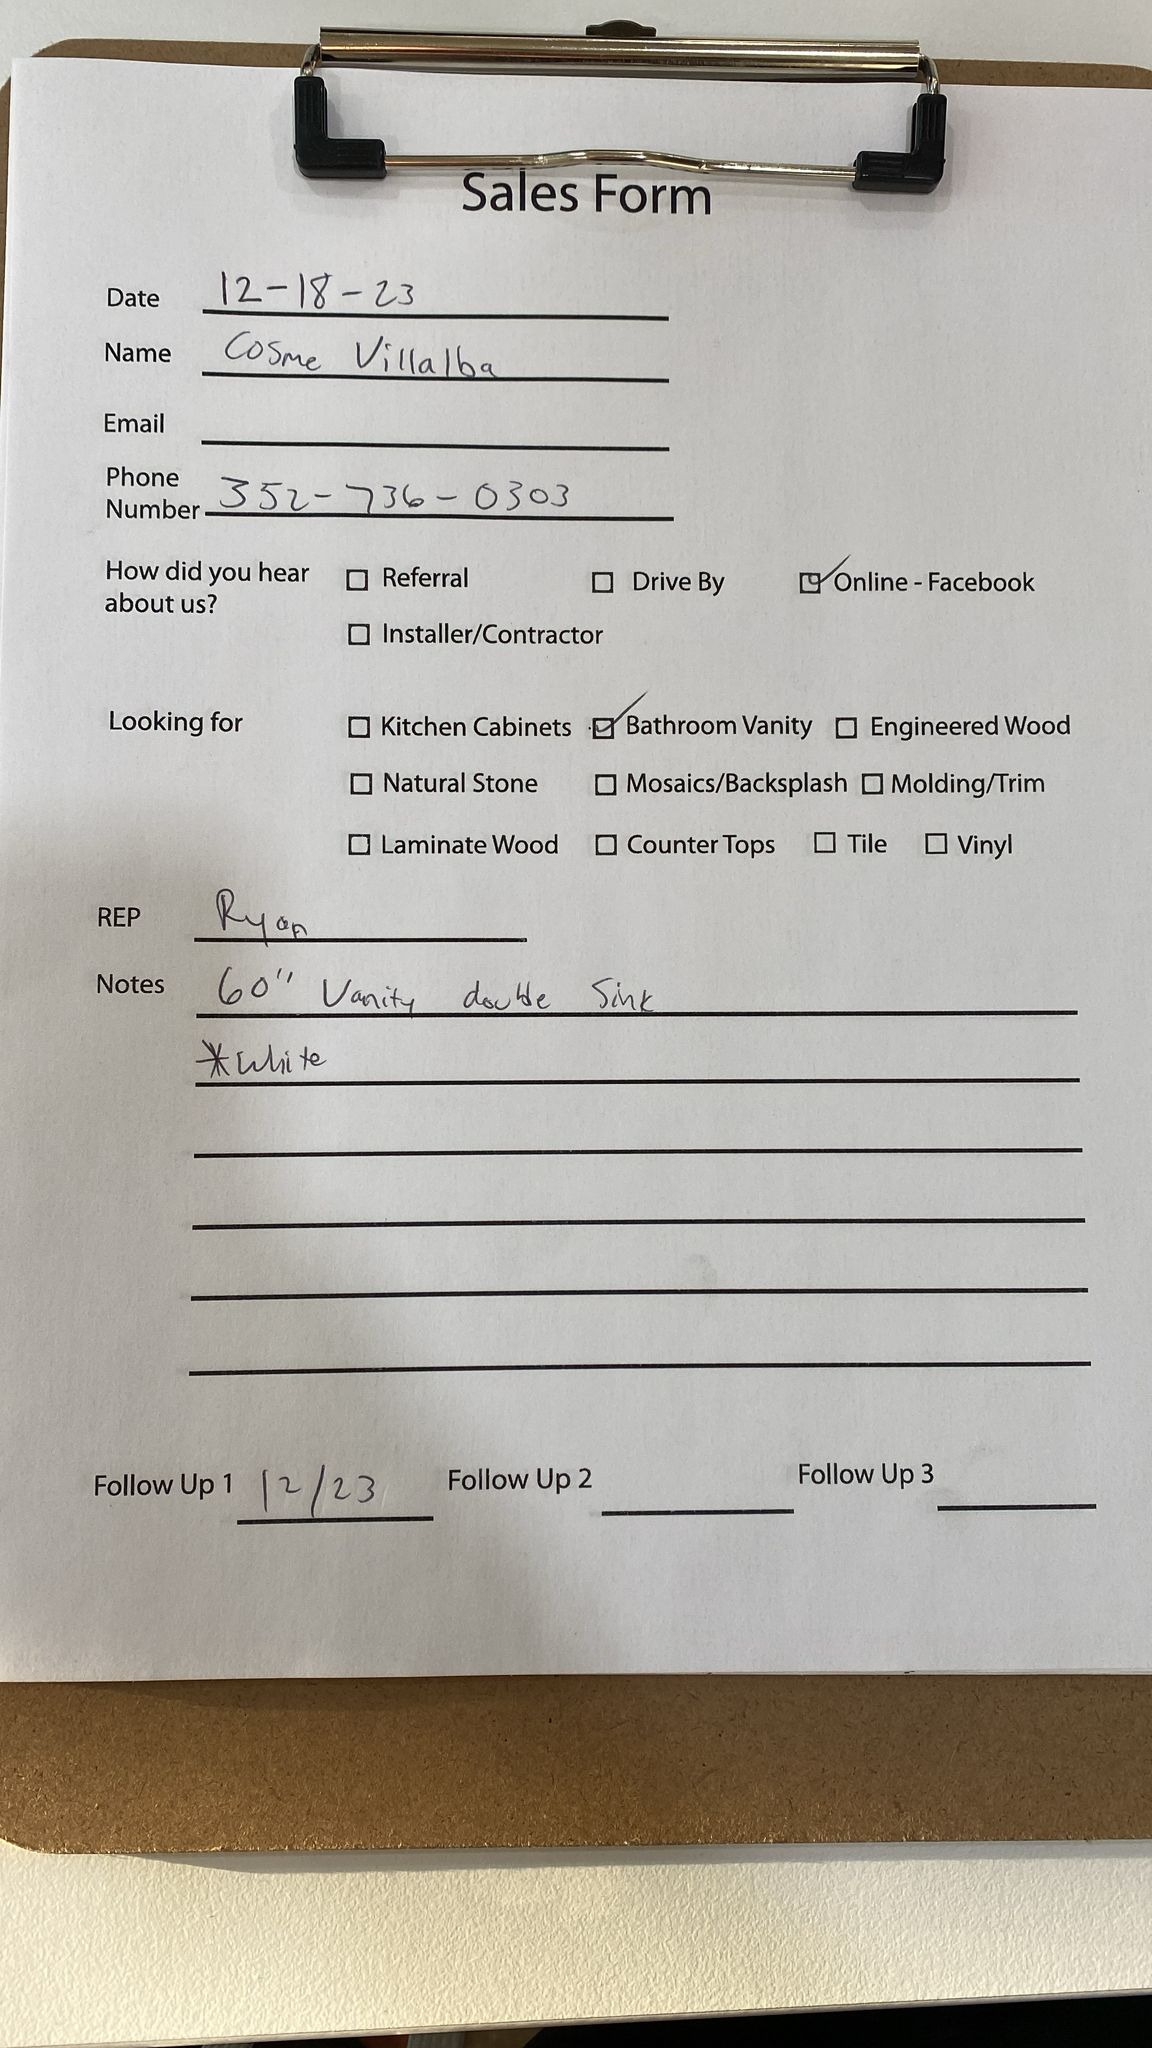 Sales Form
Date 12-18-23
Name Cosme Villalba
Email
Phone
Number 352-736-0303
How did you hear ☐ Referral ☐ Drive By ☑ Online - Facebook
about us?
☐ Installer/Contractor
Looking for ☐ Kitchen Cabinets ☑ Bathroom Vanity ☐ Engineered Wood
☐ Natural Stone ☐ Mosaics/Backsplash ☐ Molding/Trim
☐ Laminate Wood ☐ Counter Tops ☐ Tile ☐ Vinyl
REP Ryan
Notes 60" Vanity double Sink
*White
Follow Up 1 12/23 Follow Up 2 Follow Up 3